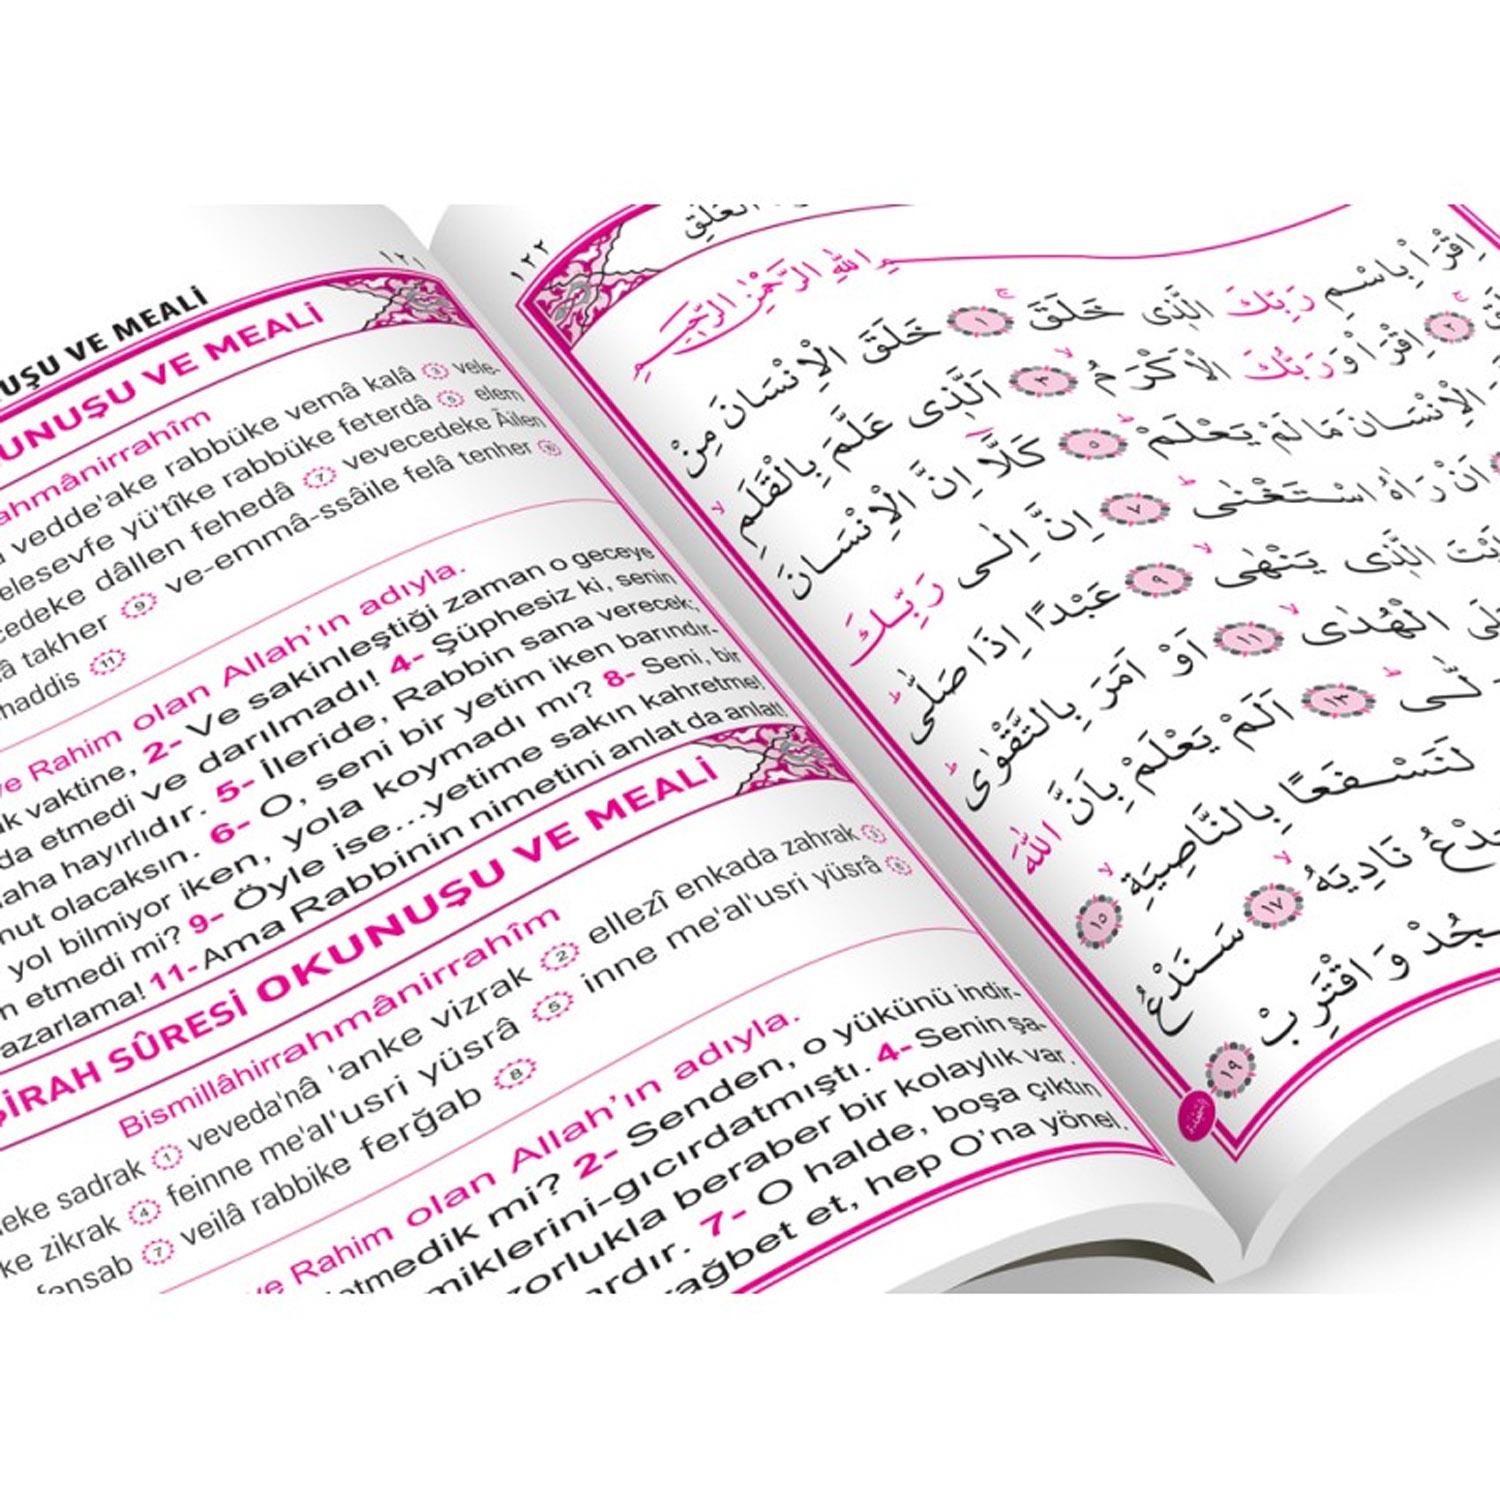 ١٢١
UŞU VE MEALİ
UNUŞU VE MEALİ
ahmânirrahîm
vedde'ake rabbüke vemâ kalâ 3 vele-
elesevfe yü'tîke rabbüke feterdâ 5 elem
cedeke dâllen fehedâ 7 vevecedeke Âilen
â takher 9 ve-emmâ-ssâile felâ tenher 10
haddis 11
ve Rahim olan Allah'ın adıyla.
k vaktine, 2- Ve sakinleştiği zaman o geceye
da etmedi ve darılmadı! 4- Şüphesiz ki, senin
aha hayırlıdır. 5- İleride, Rabbin sana verecek;
nut olacaksın. 6- O, seni bir yetim iken barındır-
yol bilmiyor iken, yola koymadı mı? 8- Seni, bir
n etmedi mi? 9- Öyle ise...yetime sakın kahretme!
azarlama! 11- Ama Rabbinin nimetini anlat da anlat!
ŞİRAH SÛRESİ OKUNUŞU VE MEALİ
Bismillâhirrahmânirrahîm
leke sadrak 1 veveda'nâ 'anke vizrak 2 ellezî enkada zahrak 3
ke zikrak 4 feinne me'al'usri yüsrâ 5 inne me'al'usri yüsrâ 6
fensab 7 veilâ rabbike ferğab 8
ve Rahim olan Allah'ın adıyla.
etmedik mi? 2- Senden, o yükünü indir-
miklerini-gıcırdatmıştı. 4- Senin şa-
zorlukla beraber bir kolaylık var.
ardır. 7- O halde, boşa çıktın
rağbet et, hep O'na yönel.
١٢٢
الْعَلَقِ
مِ اللهِ الرَّحْمٰنِ الرَّحِيمِ
اِقْرَأْ بِاسْمِ رَبِّكَ الَّذِى خَلَقَ ١ خَلَقَ الْاِنْسَانَ مِنْ
٢ اِقْرَأْ وَرَبُّكَ الْاَكْرَمُ ٣ اَلَّذِى عَلَّمَ بِالْقَلَمِ
الْاِنْسَانَ مَا لَمْ يَعْلَمْ ٥ كَلَّا اِنَّ الْاِنْسَانَ
اَنْ رَاٰهُ اسْتَغْنٰى ٧ اِنَّ اِلٰى رَبِّكَ
الَّذِى يَنْهٰى ٩ عَبْدًا اِذَا صَلّٰى
الْهُدٰى ١١ اَوْ اَمَرَ بِالتَّقْوٰى
لّٰى ١٣ اَلَمْ يَعْلَمْ بِاَنَّ اللهَ
لَنَسْفَعًا بِالنَّاصِيَةِ ١٥
نَادِيَهُ ١٧ سَنَدْعُ
وَاقْتَرِبْ ١٩